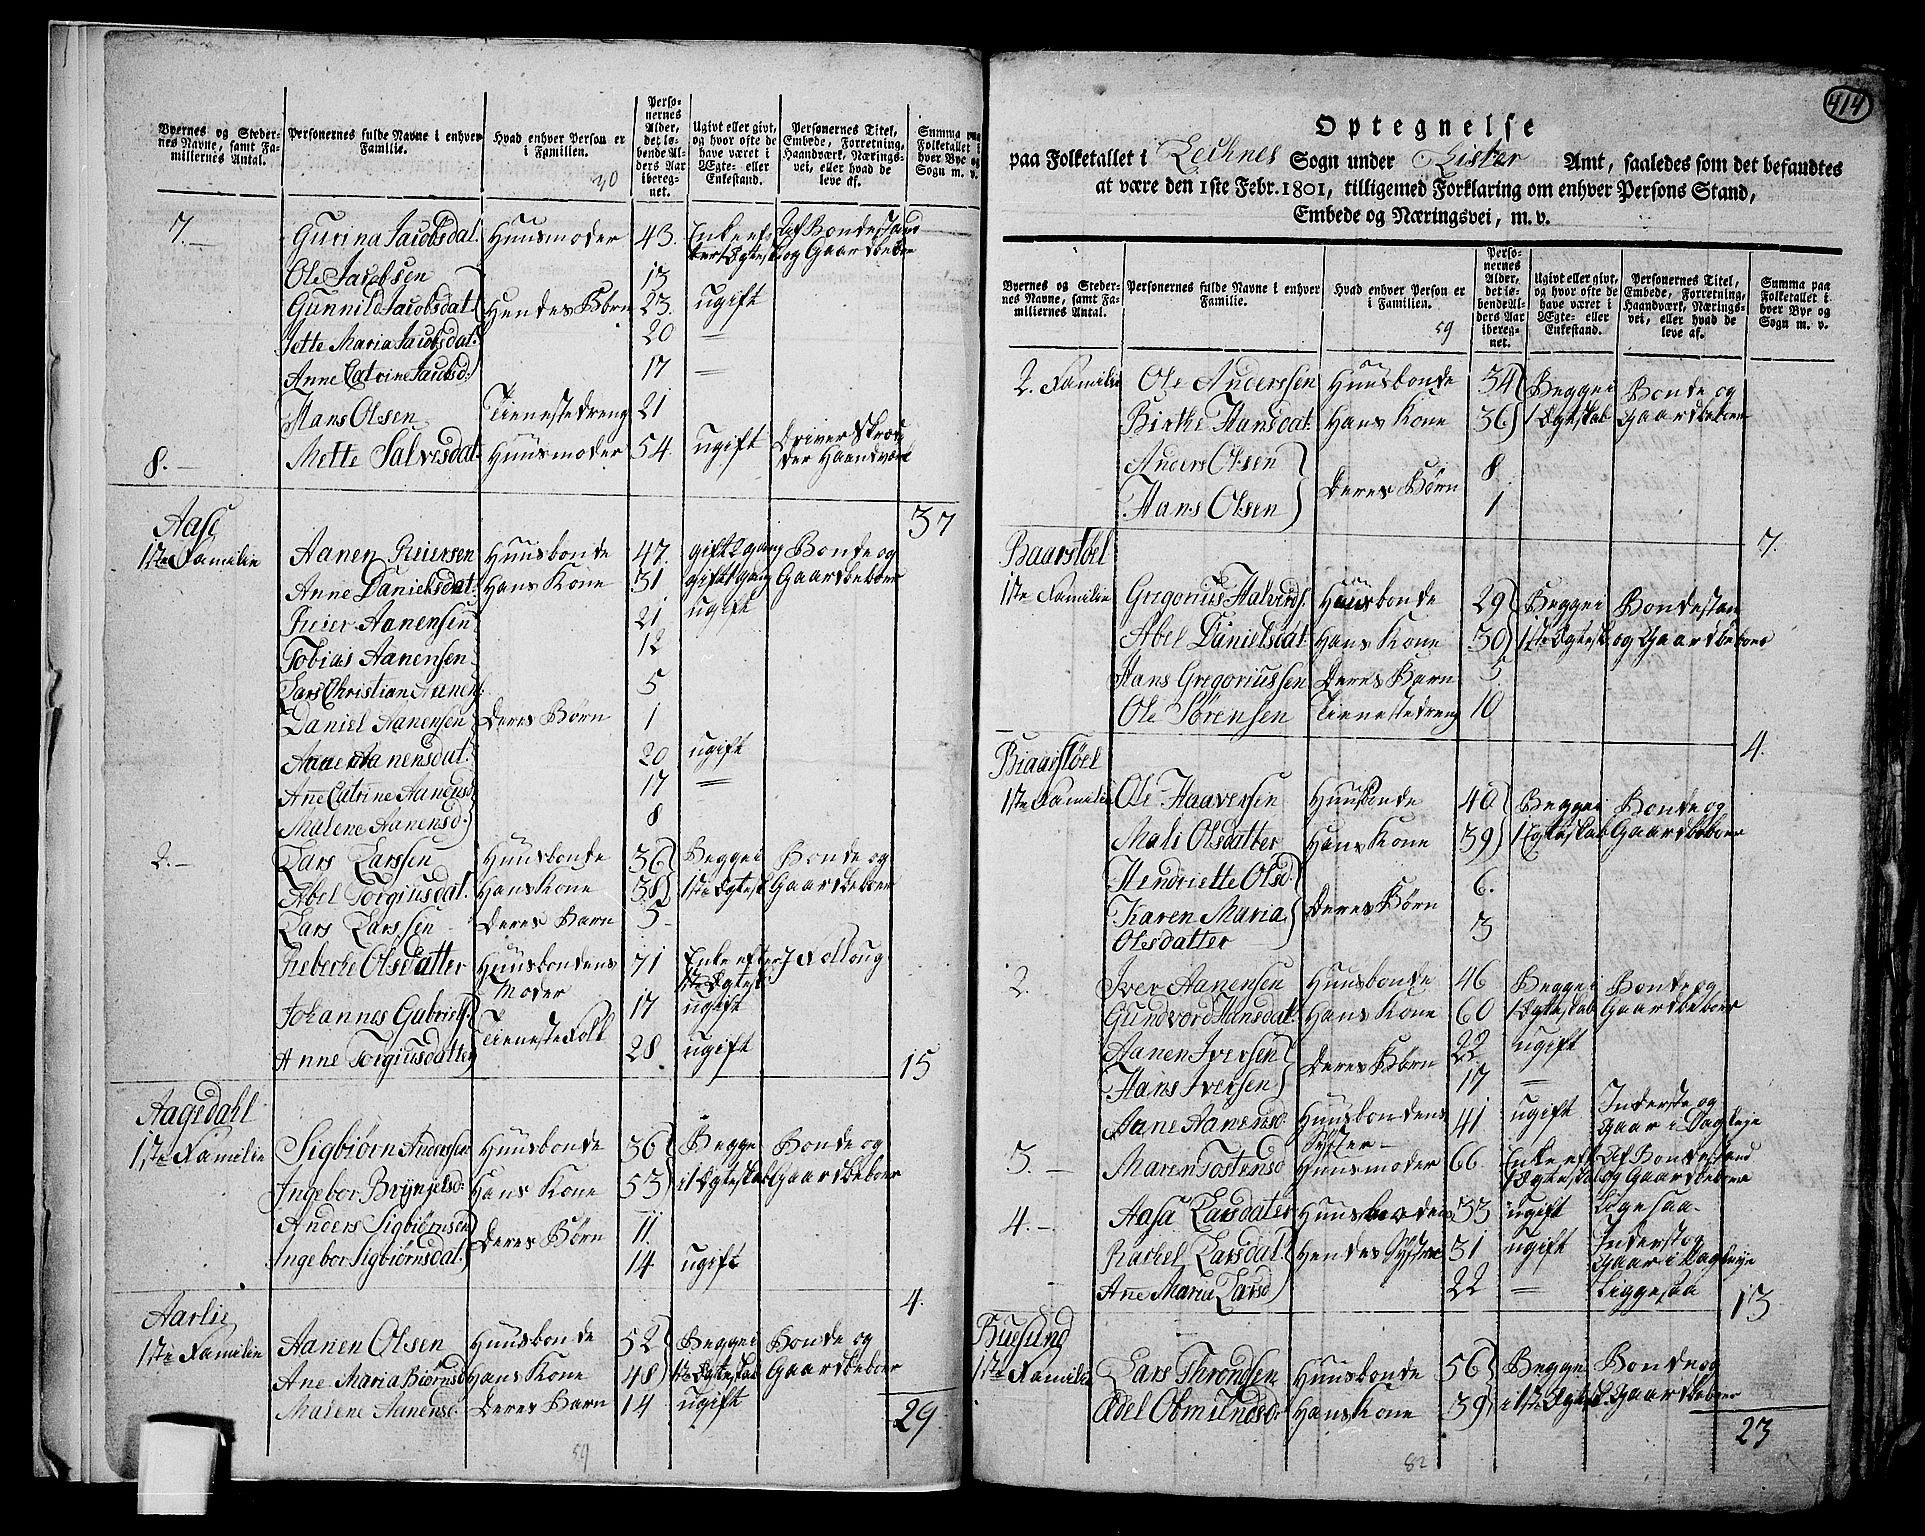 Byernes og Steder-
nes Navne, samt Fa-
miliernes Antal.
Personernes fulde Navne i enhver
Familie.
Hvad enhver Person er
i Familien.
30
Perso-
nernes
Alder,
det lø-
bende Al-
ders Aar
ibereg-
net.
Ugivt eller givt,
og hvor ofte de
have været i
Ægte- eller
Enkestand.
Personernes Titel,
Embede, Forretning,
Haandværk, Nærings-
vei, eller hvad de
leve af.
Summa paa
Folketallet i
hver Bye og
Sogn m. v.
7.— Gurina Jacobsdat. Huusmoder 43. Enke ef- Af Bondestand
og Gaardbeboer
Ole Jacobsen 13
Gunnild Jacobsdat. Hendes Børn 23. ugift
Jette Maria Jacobsdat. 20 —
Anne Catrine Jacobsd. 17 —
Hans Olsen Tienestedreng 21
8.— Mette Salvesdat. Huusmoder 54. ugift Driver Skræd-
der Haandværk
37
Aase
1ste Familie Aanen Reiersen Huusbonde 47. gift 2 gang Bonde og
Anne Danielsdat. Hans Kone 31 gift 1 gang Gaardbeboer
Reier Aanensen 21 ugift
Tobias Aanensen 12
Lars Christian Aanens. 5
Daniel Aanensen Deres Børn 1
Aane Aanensdat. 20 ugift
Añe Catrine Aanensd. 17 —
Malene Aanensd. 8
2.— Lars Larssen Huusbonde 36 Begge i Bonde og
Abel Torgiusdat. Hans Kone 38 1ste Ægtesk. Gaardbeboer
Lars Larssen Deres Barn 5
Reberke Olsdatter Huusbondens 71 Enke efter Follaug
Moder 1ste Ægtesk.
Johannes Gabriels. 17 ugift
Tienestefolk
Anne Torgiusdatter 28 ugift
15
Aagedahl
1ste Familie Sigbiørn Andersen Huusbonde 36 Begge Bonde og
Ingebor Brynjelsd. Hans Kone 53 i 1 Ægteskab Gaardbeboer
Anders Sigbiørnsen Deres Børn 11.
Ingebor Sigbiørnsdat. 14 ugift
4.
Aarlie
1ste Familie Aanen Olsen Huusbonde 52 Begge i Bonde og
Ane Maria Biørnsd. Hans Kone 48 1te Ægteskab Gaardbeboer
Malene Aanensd. Deres Barn 14 ugift
29
59
414
Optegnelse
paa Folketallet i Lechnes Sogn under Lister Amt, saaledes som det befandtes
at være den 1ste Febr. 1801, tilligemed Forklaring om enhver Persons Stand,
Embede og Næringsvei, m. v.
Byernes og Steder-
nes Navne, samt Fa-
miliernes Antal.
Personernes fulde Navne i enhver
Familie.
Hvad enhver Person er
i Familien.
59
Perso-
nernes
Alder,
det lø-
bende Al-
ders Aar
ibereg-
net.
Ugivt eller givt,
og hvor ofte de
have været i
Ægte- eller
Enkestand.
Personernes Titel,
Embede, Forretning,
Haandværk, Nærings-
vei, eller hvad de
leve af.
Summa paa
Folketallet i
hver Bye og
Sogn m. v.
2. Familie Ole Anderssen Huusbonde 34 Begge i Bonde og
Birthe Hansdat. Hans Kone 36 1 Ægteskab Gaardbeboer
Anders Olsen 8
Deres Børn
Hans Olsen 1
7.
Baarstøel
1ste Familie Gregorius Halvords. Huusbonde 29 Begge i Bondestan
Abel Danielsdat. Hans Kone 30 1ste Ægtesk. og Gaardbeboer
Hans Gregoriussen Deres Barn 5.
Ole Sørensen Tienestedreng 10
4.
Biaarstøel
1ste Familie Ole Haaversen Huusbonde 40 Begge i Bonde og
Mali Olsdatter Hans Kone 39 1 Ægteskab Gaardbeboer
Hendriette Olsd. 6.
Karen Maria Deres Børn 3
Olsdatter
2. Iver Aanensen Huusbonde 46 Begge i Bonde og
Gundvord Hansdat. Hans Kone 60 1 Ægteskab Gaardbeboer
Aanen Iversen 22 ugift
Deres Børn
Hans Iversen 17 —
Aane Aanensd. Huusbondens 41 ugift Inderste og
Syster— gaar i Dagleje
3.— Maren Tostensd. Huusmoder 66. Enke eft. Af Bondestand
1 Ægteskab og Gaardbeboer
4.— Aasa Larsdatter 33 ugift Ligesaa—
Rachel Larsdat. Hendes Systre 31 ugift Inderst og
gaar i Dagleje
Añe Maria Larsd. 22 — Liggesaa
13
Buesund
1ste Familie Lars Throndsen Huusbonde 56 Begge Bonde og
Edel Obmundsd. Hans Kone 39 i 1ste Ægtesk. Gaardbeboer
23
82